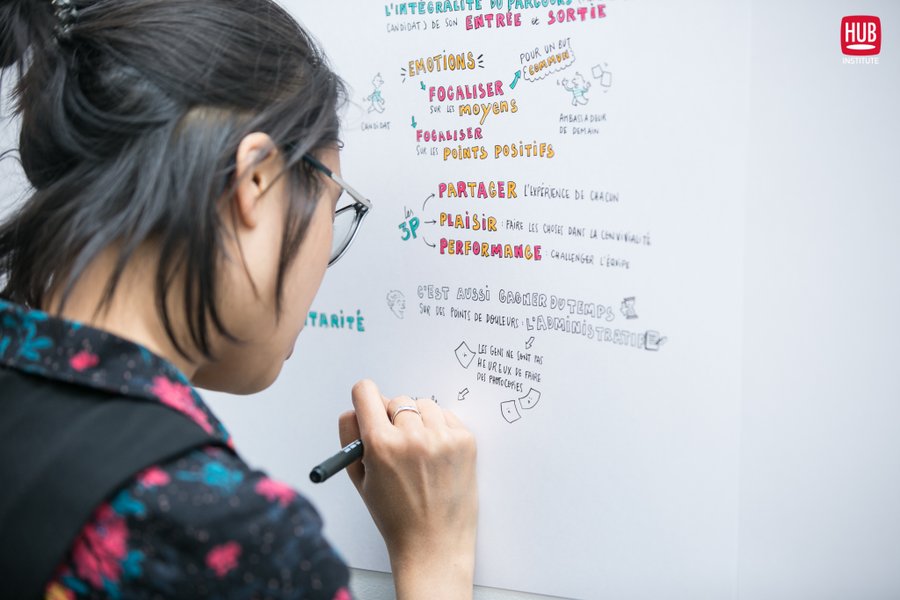 HUB
INSTITUTE
L'INTÉGRALITÉ DU PARCOURS
CANDIDAT) DE SON ENTRÉE et SORTIE
EMOTIONS
POUR UN BUT
COMMUN
FOCALISER
SUR LES MOYENS
CANDIDAT
AMBASSADEUR
DE DEMAIN
FOCALISER
SUR LES POINTS POSITIFS
les
3P
PARTAGER L'EXPÉRIENCE DE CHACUN
PLAISIR : FAIRE LES CHOSES DANS LA CONVIVIALITÉ
PERFORMANCE : CHALLENGER L'ÉQUIPE
C'EST AUSSI GAGNER DU TEMPS
SUR DES POINTS DE DOULEURS : L'ADMINISTRATIF
ITARITÉ
LES GENS NE SONT PAS
HEUREUX DE FAIRE
DES PHOTOCOPIES